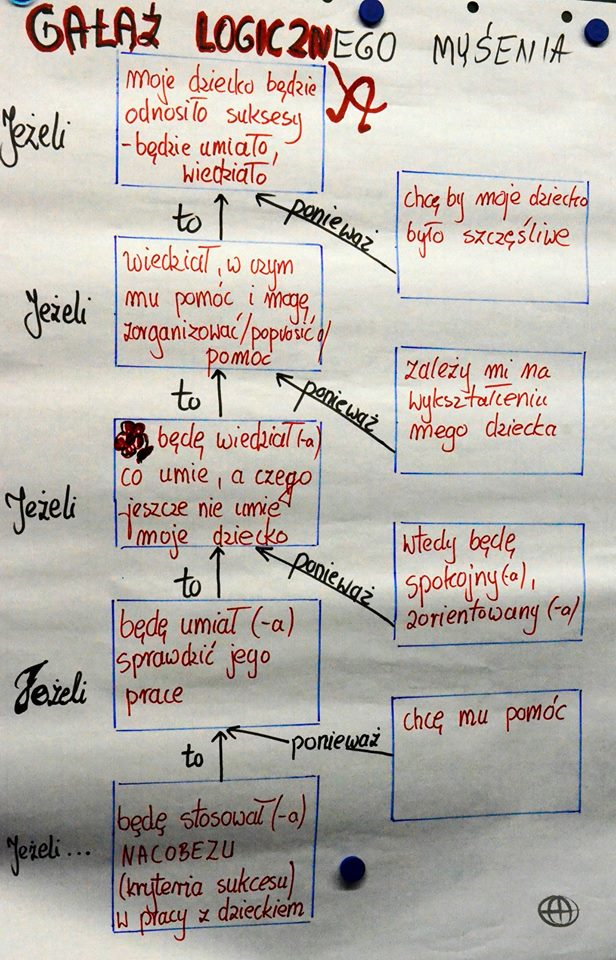 GAŁĄŹ LOGICZNEGO MYŚENIA
Jeżeli
moje dziecko będzie
odnosiło sukcesy
-będzie umiało,
wiedziało
to
ponieważ
chcę by moje dziecko
było szczęśliwe
Jeżeli
wiedział, w czym
mu pomóc i mogę
zorganizować/poprosić o/
pomoc
to
ponieważ
zależy mi na
wykształceniu
mego dziecka
Jeżeli
będę wiedział(-a)
co umie, a czego
jeszcze nie umie
moje dziecko
to
ponieważ
wtedy będę
spokojny(-a),
zorientowany(-a)
Jeżeli
będę umiał (-a)
sprawdzić jego
prace
to
ponieważ
chcę mu pomóc
Jeżeli...
będę stosował (-a)
NACOBEZU
(kryteria sukcesu)
w pracy z dzieckiem